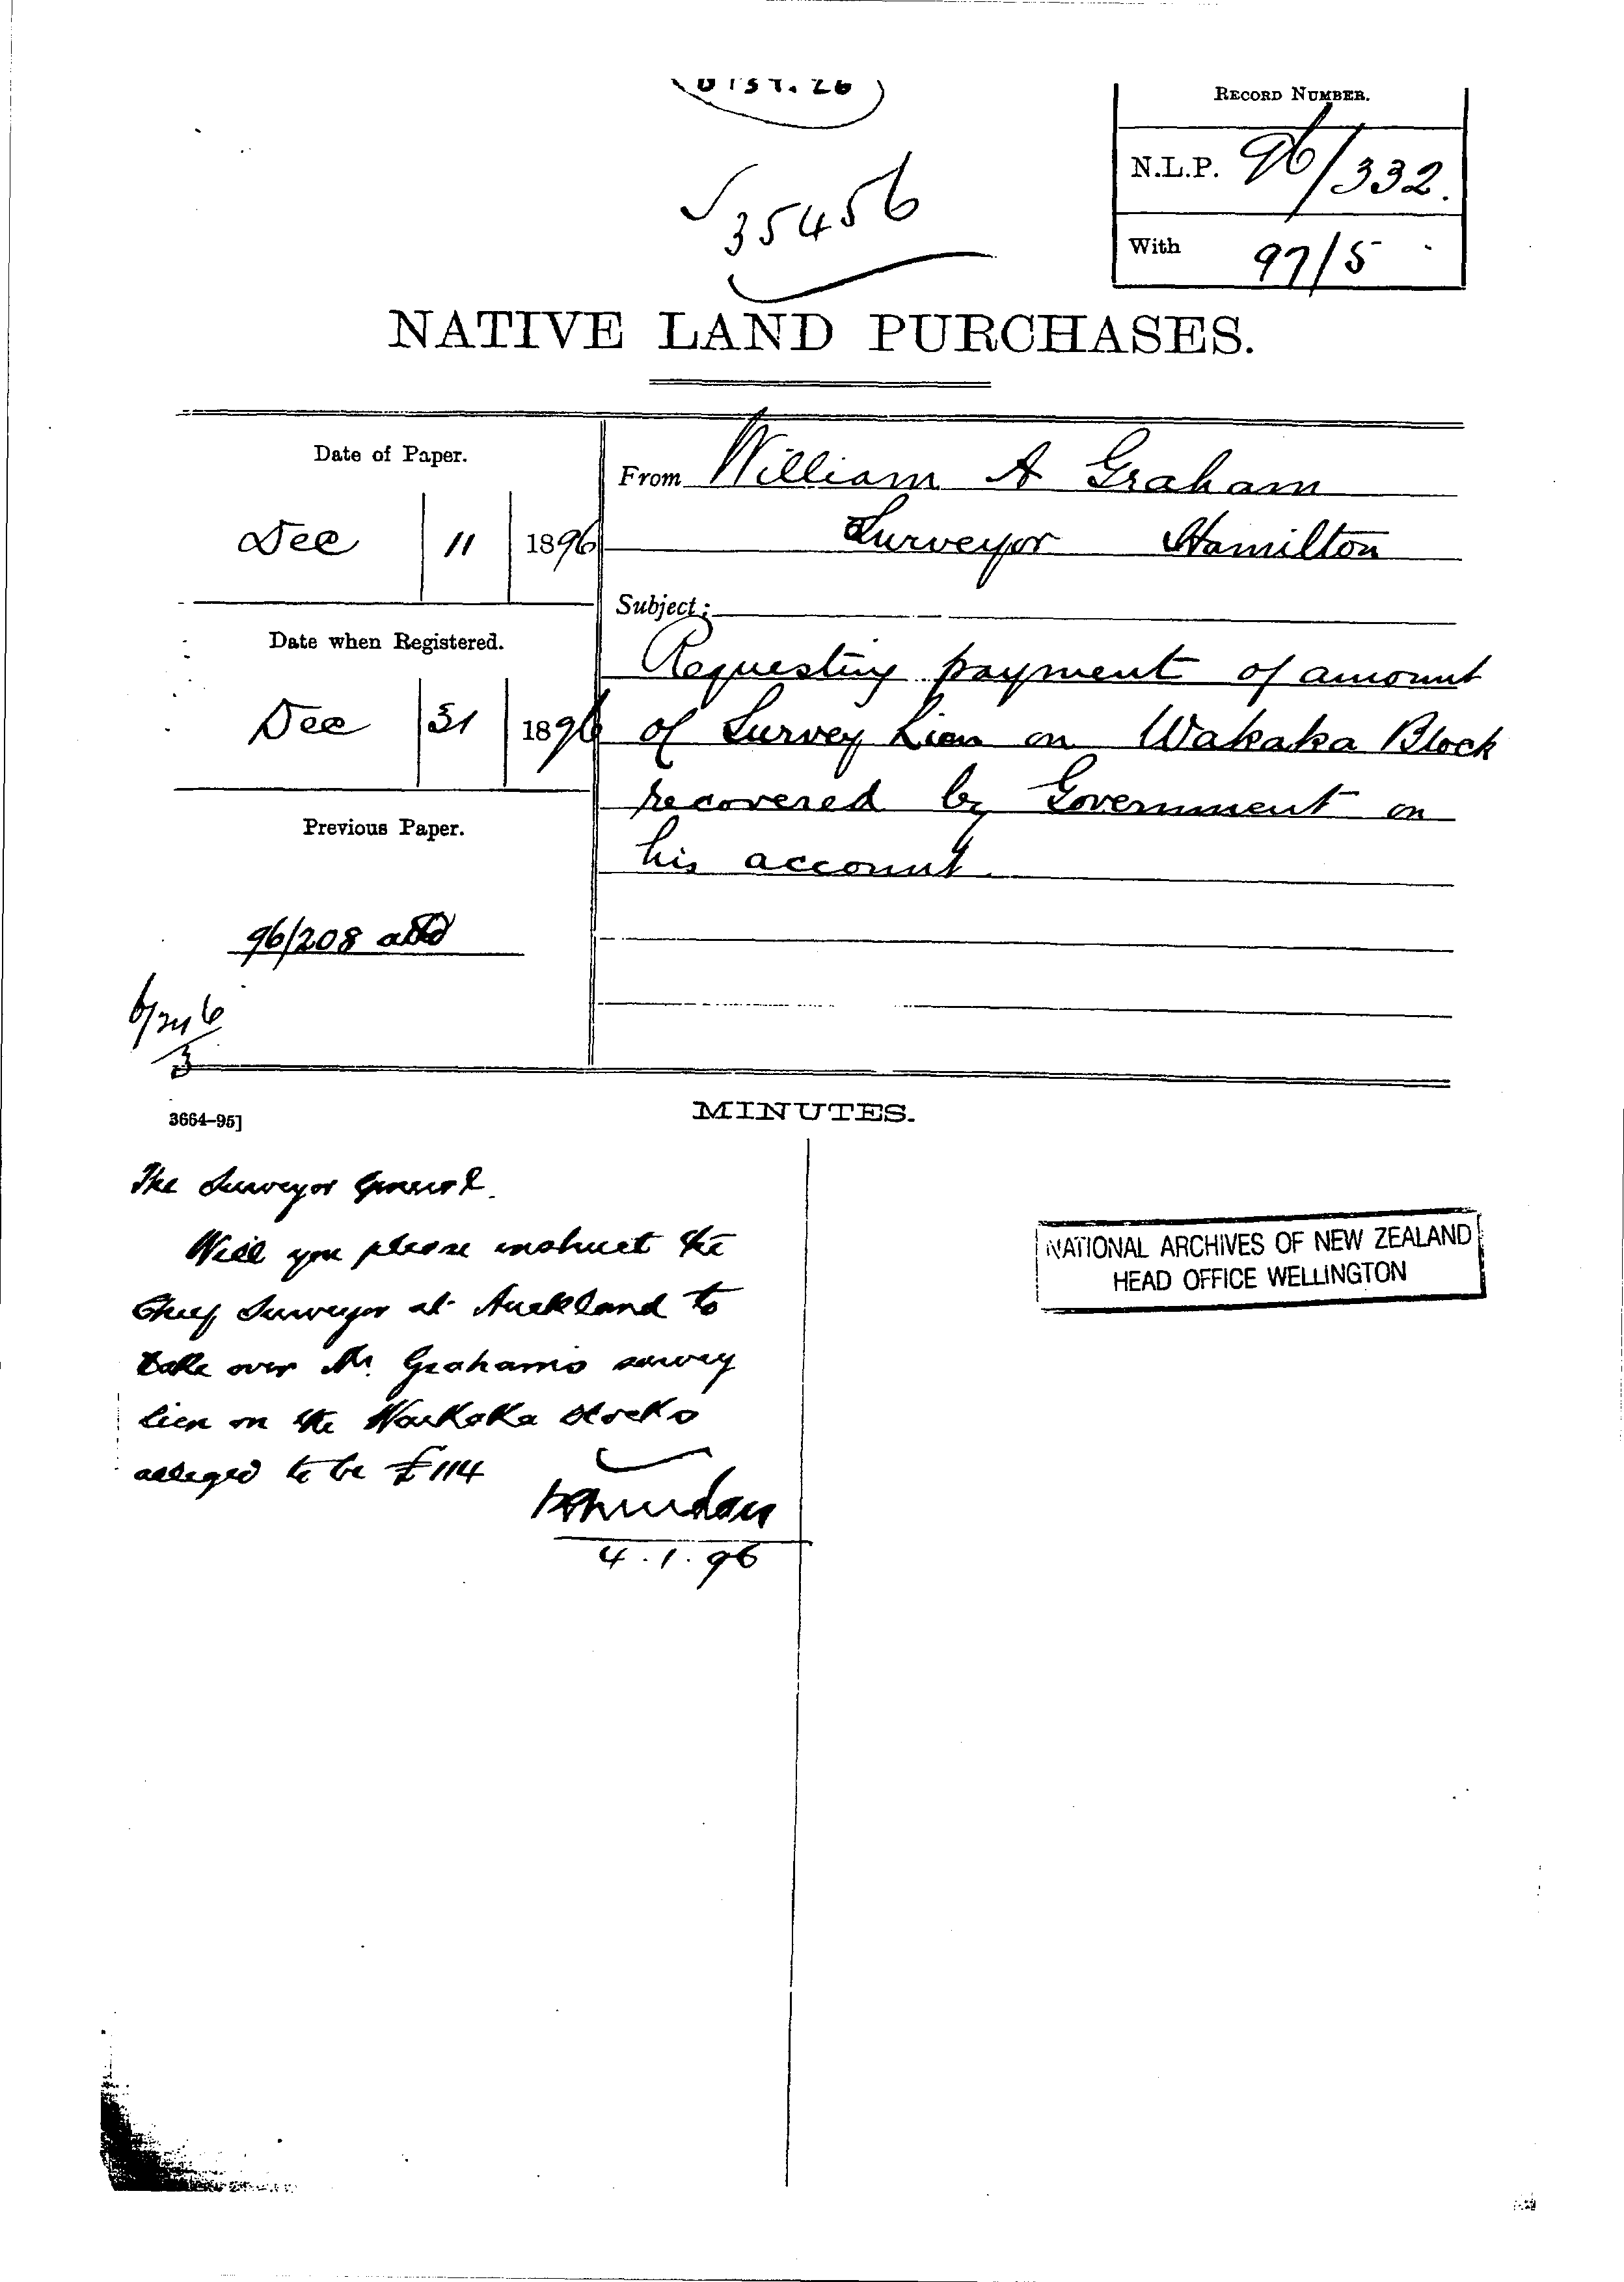 DIST. 26
35456
RECORD NUMBER.
N.L.P. 96/332.
With 97/5
NATIVE LAND PURCHASES.
Date of Paper.
Dec 11 1896
From William A Graham
Surveyor Hamilton
Subject:
Requesting payment of amount
of Survey Lien on Wakaka Block
recovered by Government on
his account.
Date when Registered.
Dec 31 1896
Previous Paper.
96/208
3
3664–95]
MINUTES.
The Surveyor General.
Will you please instruct the
Chief Surveyor at Auckland to
take over Mr. Graham's survey
lien on the Waikaka blocks
alleged to be £114
4.1.96
NATIONAL ARCHIVES OF NEW ZEALAND
HEAD OFFICE WELLINGTON